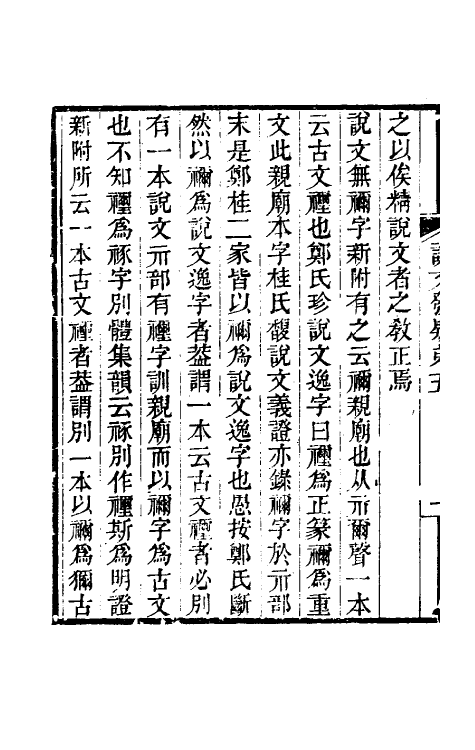 之以俟精說文者之敎正焉
說文無禰字新附有之云禰親廟也从示爾聲一本
云古文䙭也鄭氏珍說文逸字曰䙭爲正篆禰爲重
文此親廟本字桂氏馥說文義證亦錄禰字於示部
末是鄭桂二家皆以禰爲說文逸字也愚按鄭氏斷
然以禰爲說文逸字者葢謂一本云古文䙭者必別
有一本說文示部有䙭字訓親廟而以禰字爲古文
也不知䙭爲祢字別體集韻云祢別作䙭斯爲明證
新附所云一本古文䙭者葢謂別一本以禰爲獮古